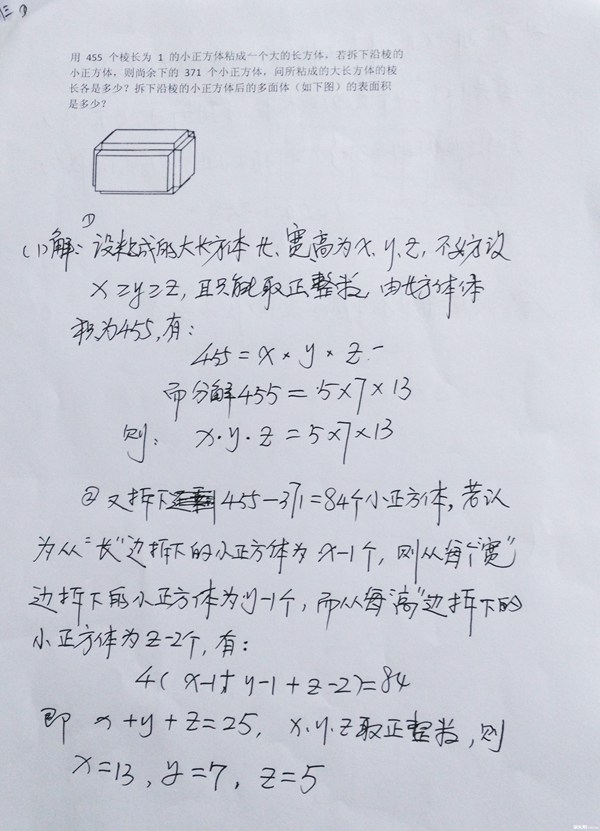 三 ①
用 455 个棱长为 1 的小正方体粘成一个大的长方体，若拆下沿棱的
小正方体，则尚余下的 371 个小正方体，问所粘成的大长方体的棱
长各是多少？拆下沿棱的小正方体后的多面体（如下图）的表面积
是多少？
①
(1)解：设粘成的大长方体长、宽、高为x、y、z，不妨设
x≥y≥z，且只能取正整数，由长方体体
积为455，有：
455=x×y×z
而分解455=5×7×13
则：x·y·z=5×7×13
②又拆下455-371=84个小正方体，若认
为从"长"边拆下的小正方体为x-1个，则从每个"宽"
边拆下的小正方体为y-1个，而从每"高"边拆下的
小正方体为z-2个，有：
4(x-1+y-1+z-2)=84
即 x+y+z=25，x.y.z取正整数，则
x=13，y=7，z=5